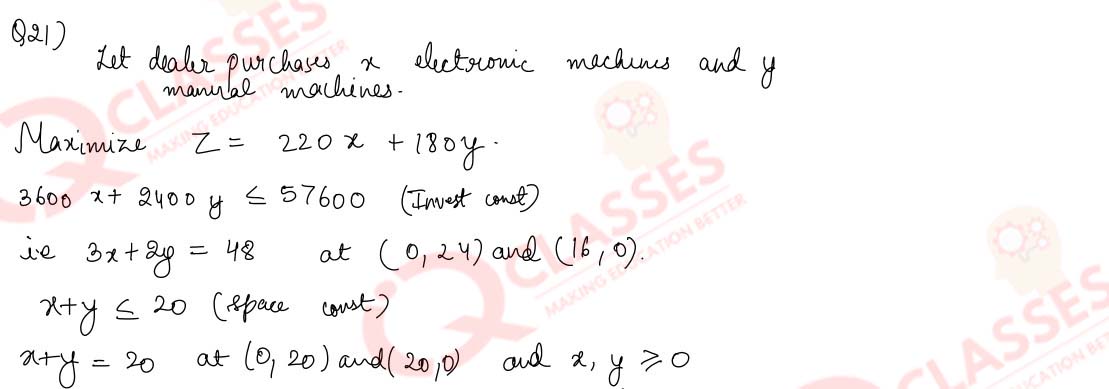 Q21)
Let dealer purchases x electronic machines and y
manual machines.
Maximize Z = 220x + 180y.
3600 x + 2400 y ≤ 57600 (Invest const)
i.e 3x+2y = 48 at (0, 24) and (16, 0).
x+y ≤ 20 (Space const)
x+y = 20 at (0, 20) and (20,0) and x, y ≥ 0
CLASSES
MAKING EDUCATION BETTER
CLASSES
MAKING EDUCATION BETTER
CLASSES
EDUCATION BETTER